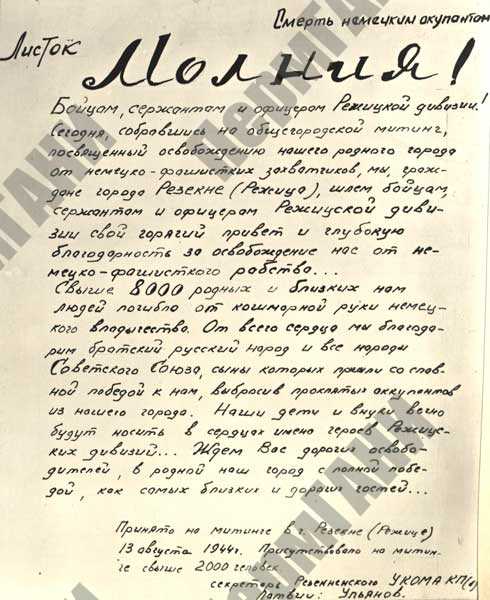 Смерть немецким окупантом
Листок
Молния!
Бойцам, сержантам и офицером Режицкой дивизии!
Сегодня, собравшись на общегородской митинг,
посвященный освобождению нашего родного города
от немецко-фашистких захватчиков, мы, граж-
дане города Резекне (Режица), шлем бойцам,
сержантам и офицером Режицской диви-
зии свой горячий привет и глубокую
благодарность за освобождение нас от не-
мецко-фашисткого рабства...
Свыше 8000 родных и близких нам
людей погибло от кошмарной руки немец-
кого владычества. От всего сердца мы благода-
рим братский русский народ и все народы
Советского Союза, сыны которых пришли со слав-
ной победой к нам, выбросив проклятых аккупантов
из нашего города. Наши дети и внуки вечно
будут носить в сердцах имена героев Режицс-
ких дивизий... Ждем Вас дорогих освобо-
дителей, в родной наш город с полной побе-
дой, как самых близких и дорогих гостей...
Принято на митинге в г. Резекне (Режице)
13 августа 1944г. Присутствовало на митин-
ге свыше 2000 человек.
секретарь Резекненского УКОМА КП(б)
Латвии: Ульянов.